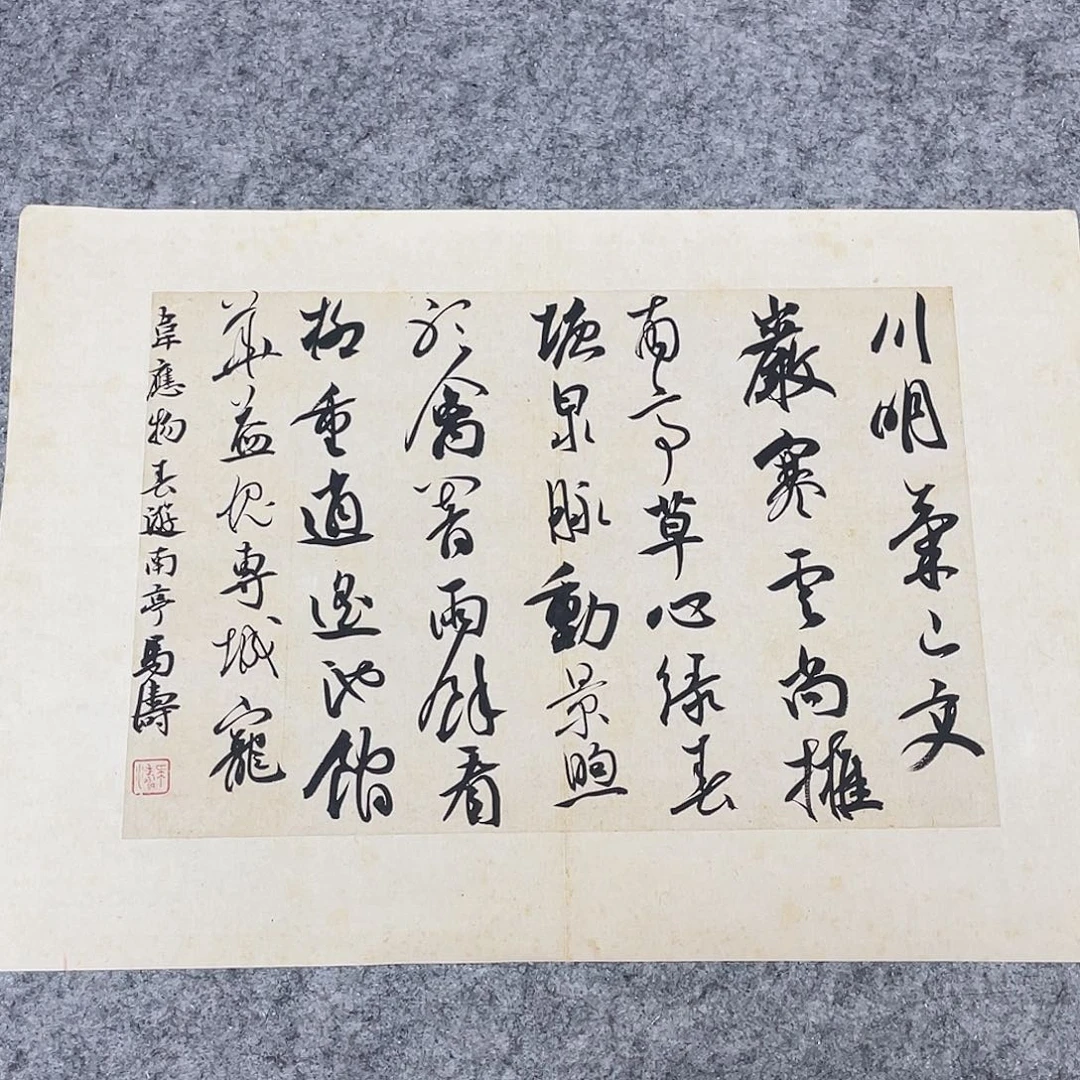 川明氣已變
巖寒雲尚擁
南亭草心綠春
塘泉脈動景煦
聽禽響雨餘看
柳重逍遙池館
華益愧專城寵
韋應物春遊南亭馬濤